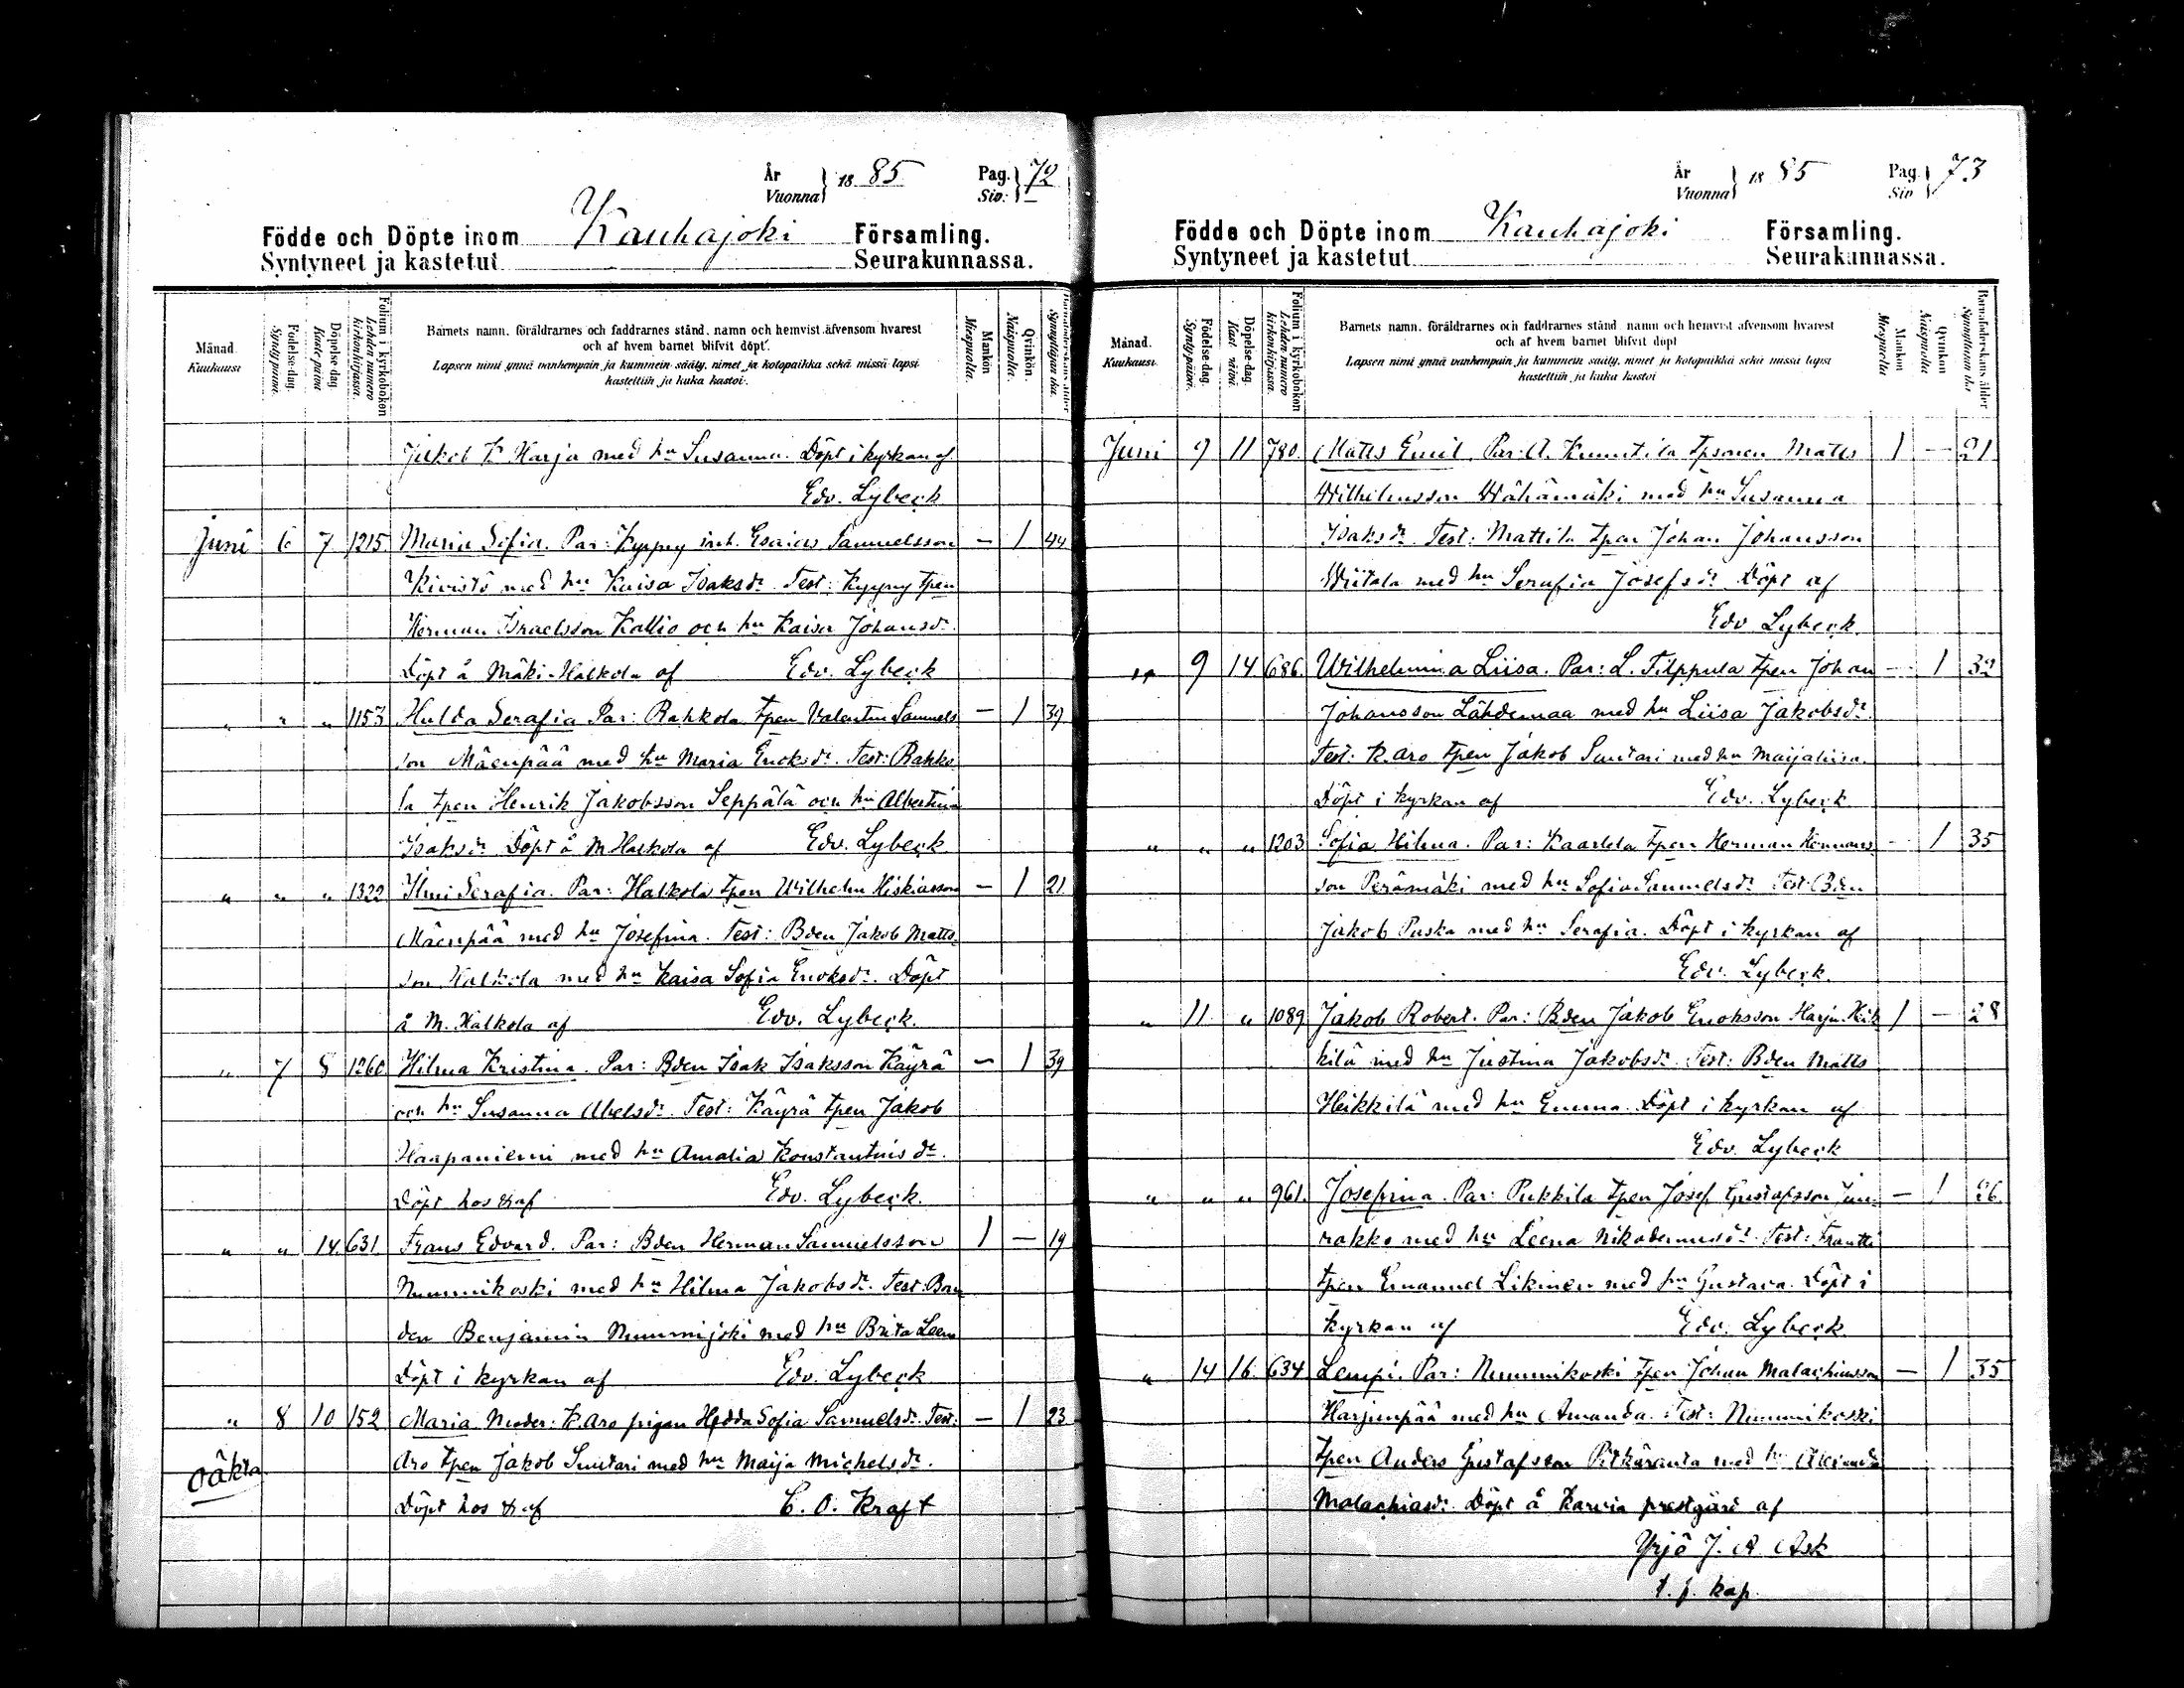 År
Vuonna 1885 Pag. Siv: 72
Födde och Döpte inom Kauhajoki Församling.
Syntyneet ja kastetut Seurakunnassa.
Månad. Kuukausi
Födelse-dag. Syntypäivä.
Döpelse-dag. Kaste-päivä
Folium i kyrkoboken Lehden numero kirkonkirjassa.
Barnets namn, föräldrarnes och faddrarnes stånd, namn och hemvist äfvensom hvarest
och af hvem barnet blifvit döpt.
Lapsen nimi ynnä vanhempain ja kummein sääty, nimet ja kotopaikka sekä missä lapsi
kastettiin ja kuka kastoi.
Mankön Miespuolia.
Qvinkön. Naispuolia.
Barnaföderskans ålder Synnyttäjän ikä.
Jakob K Harja med hu Susanna. Döpt i kyrkan af
Edv. Lybeck
Juni 6 7 1215 Maria Sofia. Par: Kyyny inh. Esaias Samuelsson — 1 44
Kivistö med hu Kaisa Isaksdr. Test: Kyyny tpen
Herman Israelsson Kallio och hu Kaisa Johansdr.
Döpt å Mäki-Halkola af Edv. Lybeck
" " " 1153 Hulda Serafia Par: Rahkola tpen Valentin Samuels — 1 39
son Mäenpää med hu Maria Enoksdr. Test: Rahko
la tpen Henrik Jakobsson Seppälä och hu Albertina
Isaksdr. Döpt å M Halkola af Edv. Lybeck
" " " 1322 Ilmi Serafia. Par: Halkola tpen Wilhelm Hiskiasson — 1 21
Mäenpää med hu Josefina. Test: Bden Jakob Matts
son Halkola med hu Kaisa Sofia Enoksdr. Döpt
å M. Halkola af Edv. Lybeck.
" 7 8 1260 Hilma Kristina. Par: Bden Isak Isaksson Käyrä — 1 39
och hu Susanna Abelsdr. Test: Käyrä tpen Jakob
Haapaniemi med hu Amalia Konstantinsdr.
Döpt hos & af Edv. Lybeck.
" " 14 631 Frans Edvard. Par: Bden Herman Samuelsson 1 — 19
Nummikoski med hu Hilma Jakobsdr. Test: Bon
den Benjamin Nummijoki med hu Brita Leena
Döpt i kyrkan af Edv. Lybeck
" 8 10 152 Maria Moder: K. Aro pigan Hedda Sofia Samuelsdr. Test: — 1 23
oäkta. Aro tpen Jakob Suutari med hu Maija Michelsdr.
Döpt hos & af C. O. Kraft
År
Vuonna 1885 Pag. Siv 73
Födde och Döpte inom Kauhajoki Församling.
Syntyneet ja kastetut Seurakunnassa.
Månad. Kuukausi.
Födelse-dag. Syntypäivä.
Döpelse-dag. Kast. päivä.
Folium i kyrkoboken Lehden numero kirkonkirjassa.
Barnets namn, föräldrarnes och faddrarnes stånd, namn och hemvist äfvensom hvarest
och af hvem barnet blifvit döpt
Lapsen nimi ynnä vanhempain ja kummein sääty, nimet ja kotopaikka sekä missä lapsi
kastettiin ja kuka kastoi
Mankön Miespuolia
Qvinkön Naispuolia
Barnaföderskans ålder Synnyttäjän ikä
Juni 9 11 780. Matts Emil. Par: A. Knuutila tpsonen Matts 1 — 21
Wilhelmsson Wähämäki med hu Susanna
Isaksdr. Test: Mattila tpen Johan Johansson
Wiitala med hu Serafia Josefsdr. Döpt af
Edv Lybeck.
" 9 14 686. Wilhelmina Liisa. Par: L. Filppula tpen Johan — 1 32
Johansson Lähdemaa med hu Liisa Jakobsdr.
Test: K. Aro tpen Jakob Suutari med hu Maijaliisa.
Döpt i kyrkan af Edv. Lybeck
" " " 1203 Sofia Hilma. Par: Kaarlela tpen Herman Hermans — 1 35
son Perämäki med hu Sofia Samuelsdr. Test: Bden
Jakob Puska med hu Serafia. Döpt i kyrkan af
Edv. Lybeck.
" 11 " 1089 Jakob Robert. Par: Bden Jakob Enoksson Harju-Heik 1 — 28
kilä med hu Justina Jakobsdr. Test: Bden Matts
Heikkilä med hu Emma. Döpt i kyrkan af
Edv. Lybeck
" " " 961. Josefina. Par: Pukkila tpen Josef Gustafsson — 1 26.
rakko med hu Leena Nikodemusdr. Test: Frantti
tpen Emanuel Likinen med hu Gustava. Döpt i
kyrkan af Edv. Lybeck
" 14 16 634 Lempi. Par: Nummikoski tpen Johan Malachiasson — 1 35
Harjunpää med hu Amanda. Test: Nummikoski
tpen Anders Gustafsson Pitkäranta med hu
Malachiasdr. Döpt å Karvia prestgård af
Yrjö J. A Ask
t. f. kap.